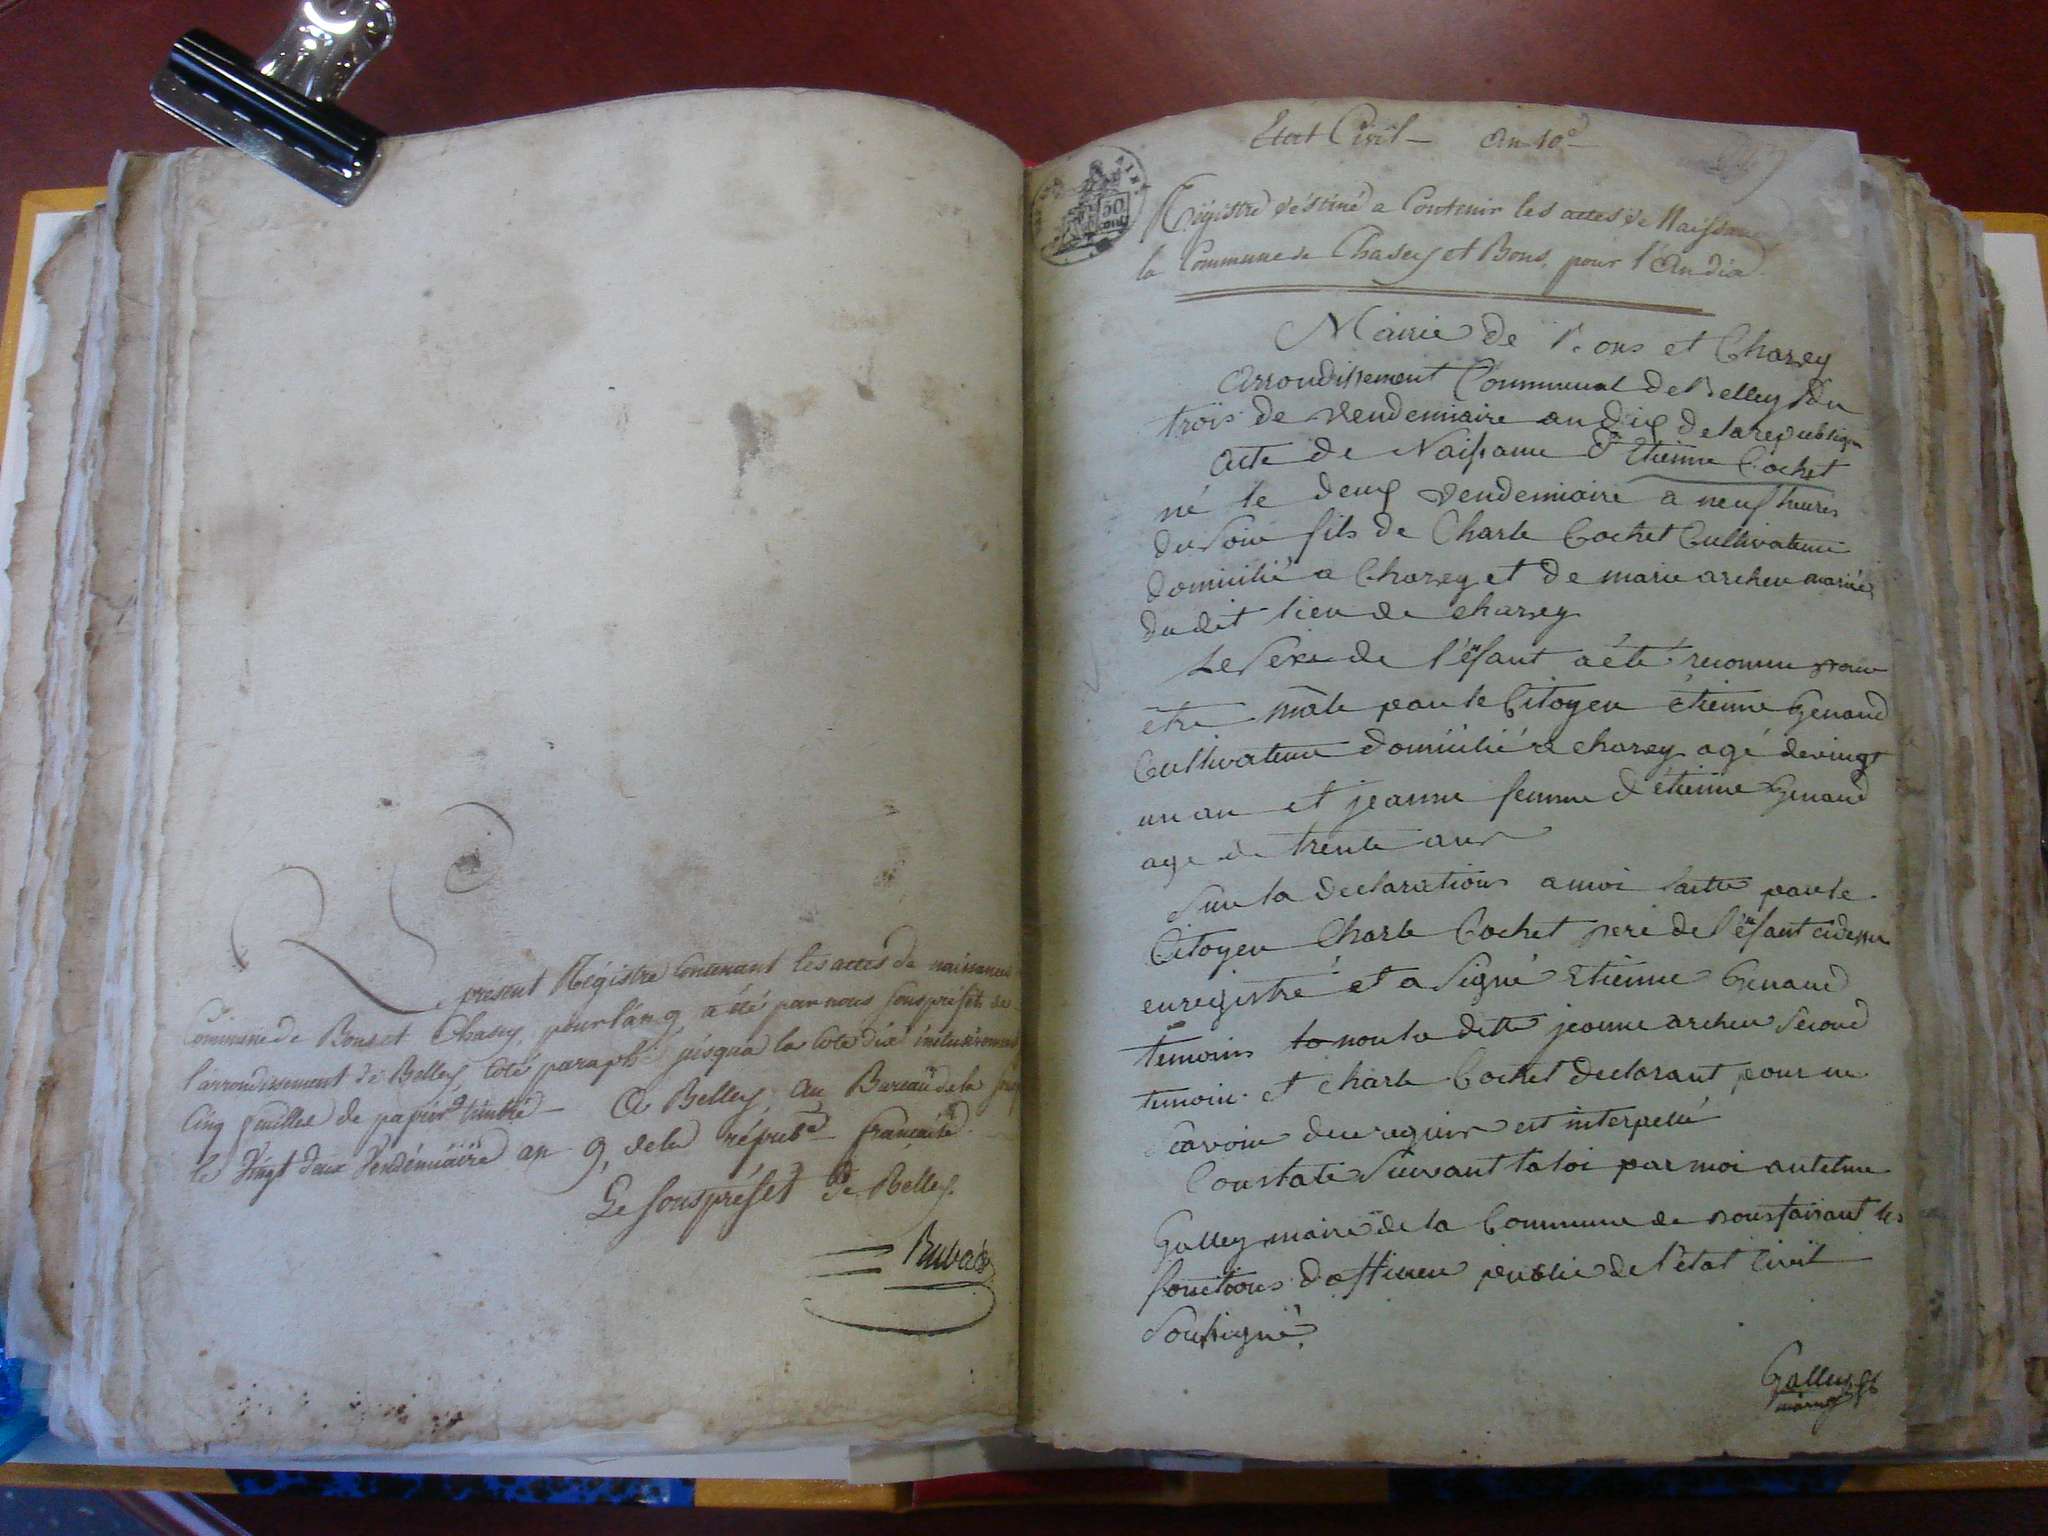 Le présent Régistre Contenant les actes de naissance
Commune de Bons et Chasey, pour l'an 9 a été par nous souspréfet de
l'arrondissement de Belley coté paraph. jusqua la cote dix inclusivement
Cinq feuilles de papier timbré — A Belley au Bureau de la
le vingt deux Vendémiaire an 9 de la répub.e française
Le souspréfet de Belley.
Etat Civil — An 10e
50
Régistre déstiné a Contenir les actes de Naissance
la Commune de Chasey et Bons, pour l'An dix
Mairie de Bons et Chazey
Arrondissement Communal de Belley Du
trois de vendemiaire an dix de la republique
Acte de Naissance d'Etienne Cochet
né le deux vendemiaire a neuf heures
du soir fils de Charle Cochet Cultivateur
domicilié a Chazey et de marie archer mariés
du dit lieu de chazey
Le Sexe de l'enfant a été reconnu pour
être mâle par le Citoyen étienne Genand
Cultivateur domicilié a chazey agé de vingt
un an et jeanne femme d'étienne Genand
age de trente ans
Sur la declaration a moi faitte par le
Citoyen Charle Cochet pere de l'enfant cidessu
enregistré et a Signé Etienne Genand
temoins non la ditte jeanne archer Second
temoin et charle Cochet declarant pour ne
Savoir de ce requis et interpellé
Constaté Suivant la loi par moi antelme
Gulley maire de la Commune de nous faisant les
fonctions d'officier public de l'état civil
Soussigné
maire